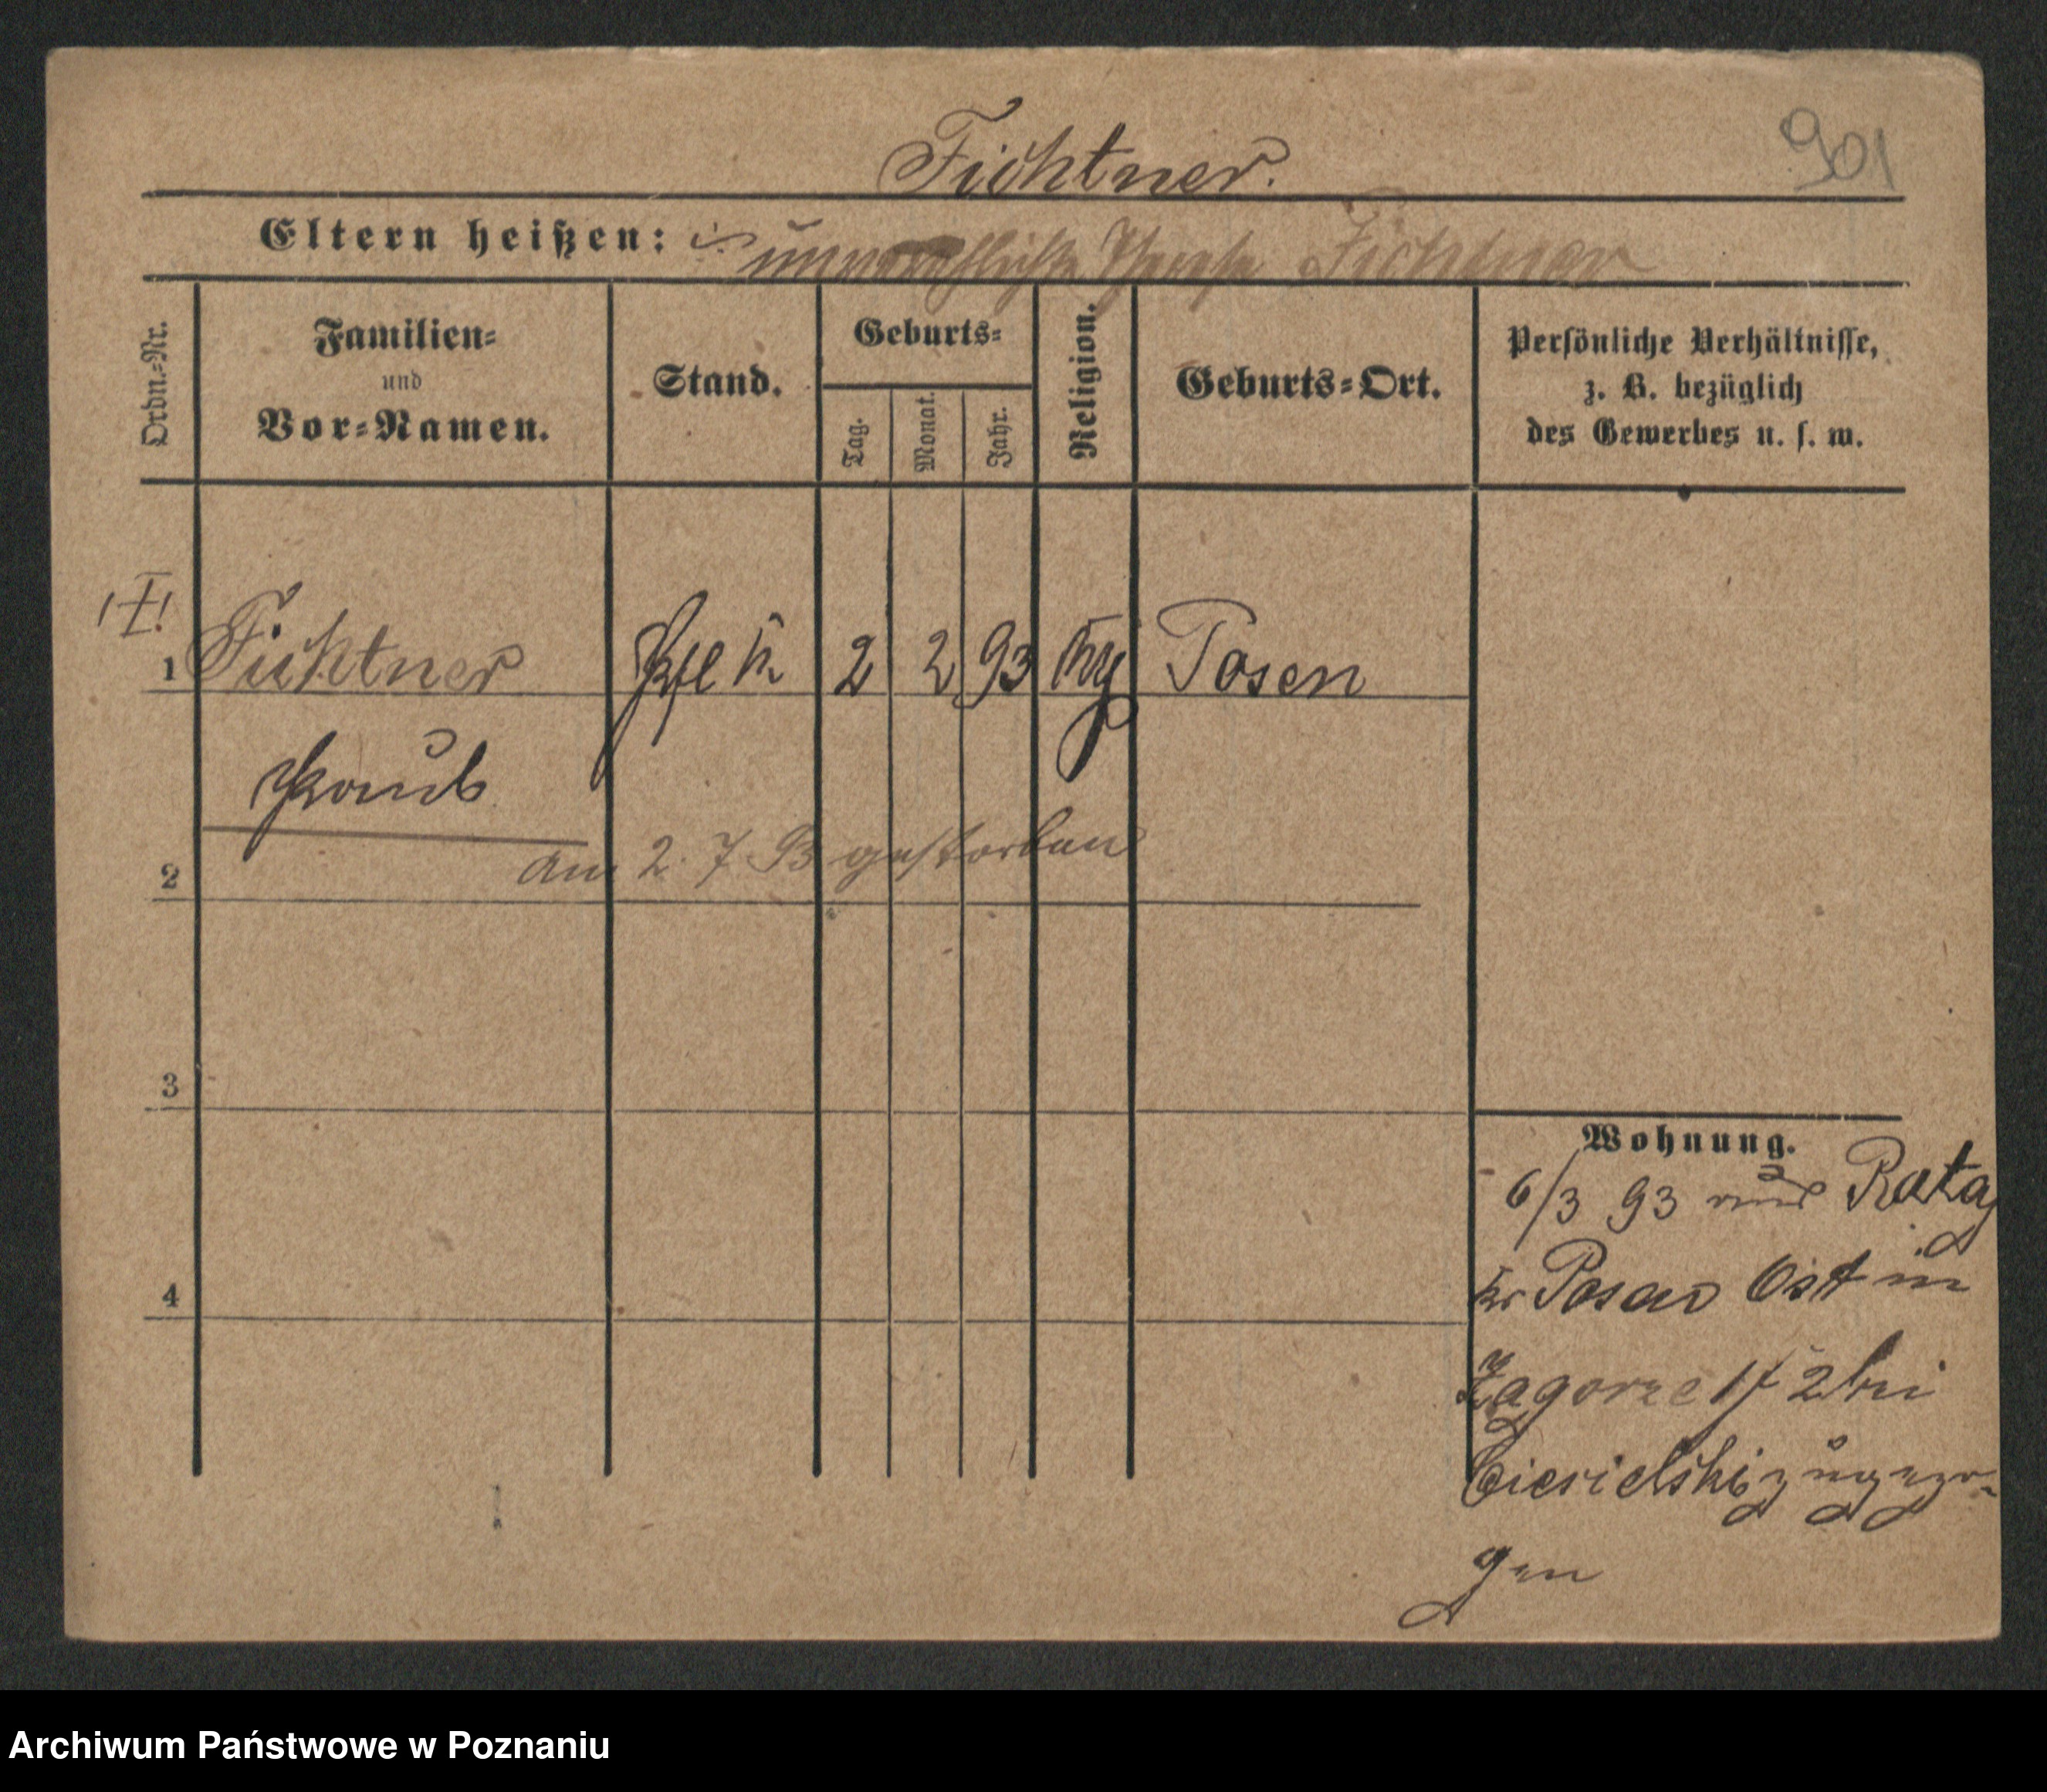 Fichtner.
901
Eltern heißen: unverehelichte Fichtner
Ordn.-Nr.
Familien-
und
Vor-Namen.
Stand.
Geburts-
Tag.
Monat.
Jahr.
Religion.
Geburts-Ort.
Persönliche Verhältnisse,
z. B. bezüglich
des Gewerbes u. s. w.
1 Fichtner 2 2 93 Posen
2 am 2. 7 93 gestorben
3
4
Wohnung.
6/3 93 aus Rataj
Kr Posen Ost in
Zagorze 1/2 bei
Ciesielski zugezo-
gen
Archiwum Państwowe w Poznaniu